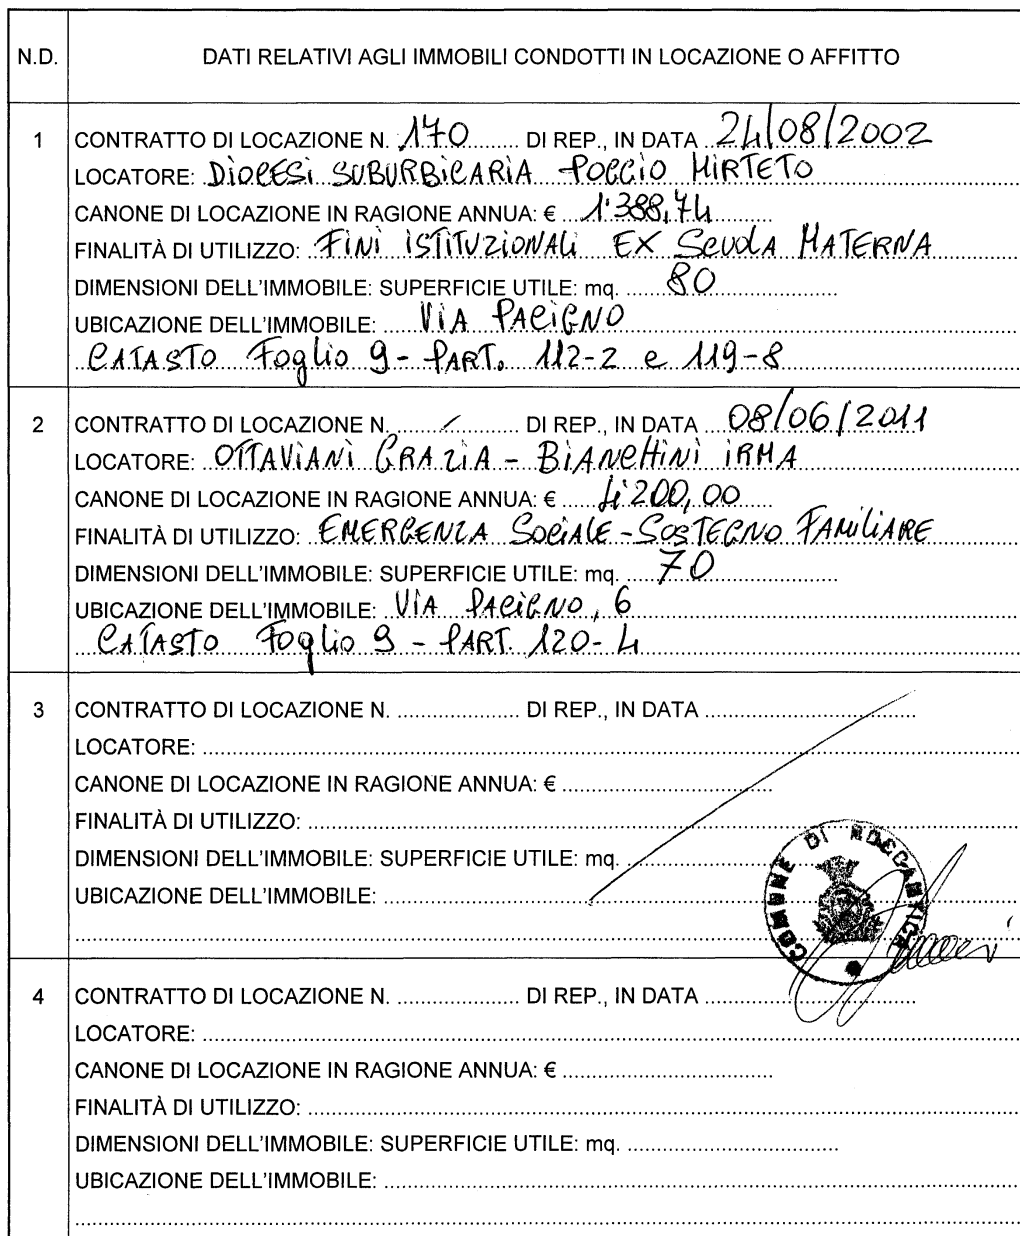 N.D. DATI RELATIVI AGLI IMMOBILI CONDOTTI IN LOCAZIONE O AFFITTO
1 CONTRATTO DI LOCAZIONE N. 170 DI REP., IN DATA 24/08/2002
LOCATORE: DIOCESI SUBURBICARIA POGGIO MIRTETO
CANONE DI LOCAZIONE IN RAGIONE ANNUA: € 1.388,74
FINALITÀ DI UTILIZZO: FINI ISTITUZIONALI EX SCUOLA MATERNA
DIMENSIONI DELL'IMMOBILE: SUPERFICIE UTILE: mq. 80
UBICAZIONE DELL'IMMOBILE: VIA PACIGNO
CATASTO Foglio 9 - PART. 112-2 e 119-8
2 CONTRATTO DI LOCAZIONE N. / DI REP., IN DATA 08/06/2011
LOCATORE: OTTAVIANI GRAZIA - BIANCHINI IRMA
CANONE DI LOCAZIONE IN RAGIONE ANNUA: € 4.200,00
FINALITÀ DI UTILIZZO: EMERGENZA SOCIALE - SOSTEGNO FAMILIARE
DIMENSIONI DELL'IMMOBILE: SUPERFICIE UTILE: mq. 70
UBICAZIONE DELL'IMMOBILE: VIA PACIGNO, 6
CATASTO Foglio 9 - PART. 120-4
3 CONTRATTO DI LOCAZIONE N. .................... DI REP., IN DATA ....................
LOCATORE: ....................
CANONE DI LOCAZIONE IN RAGIONE ANNUA: € ....................
FINALITÀ DI UTILIZZO: ....................
DIMENSIONI DELL'IMMOBILE: SUPERFICIE UTILE: mq. ....................
UBICAZIONE DELL'IMMOBILE: ....................
COMUNE DI ROCCANTICA
4 CONTRATTO DI LOCAZIONE N. .................... DI REP., IN DATA ....................
LOCATORE: ....................
CANONE DI LOCAZIONE IN RAGIONE ANNUA: € ....................
FINALITÀ DI UTILIZZO: ....................
DIMENSIONI DELL'IMMOBILE: SUPERFICIE UTILE: mq. ....................
UBICAZIONE DELL'IMMOBILE: ....................